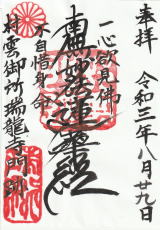 奉拝
令和三年八月廿九日
一心欲見佛
南無妙法蓮華経
不自惜身命
村雲御所瑞龍寺門跡